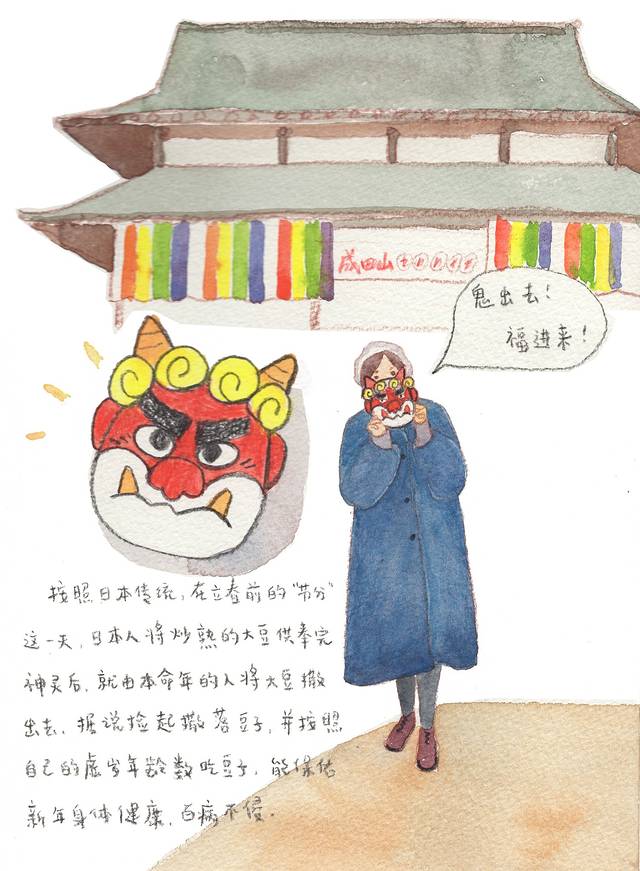 成田山
鬼出去!
福进来!
按照日本传统,在立春前的"节分"
这一天,日本人将炒熟的大豆供奉完
神灵后,就由本命年的人将大豆撒
出去。据说捡起撒落豆子,并按照
自己的虚岁年龄数吃豆子,能保佑
新年身体健康,百病不侵。